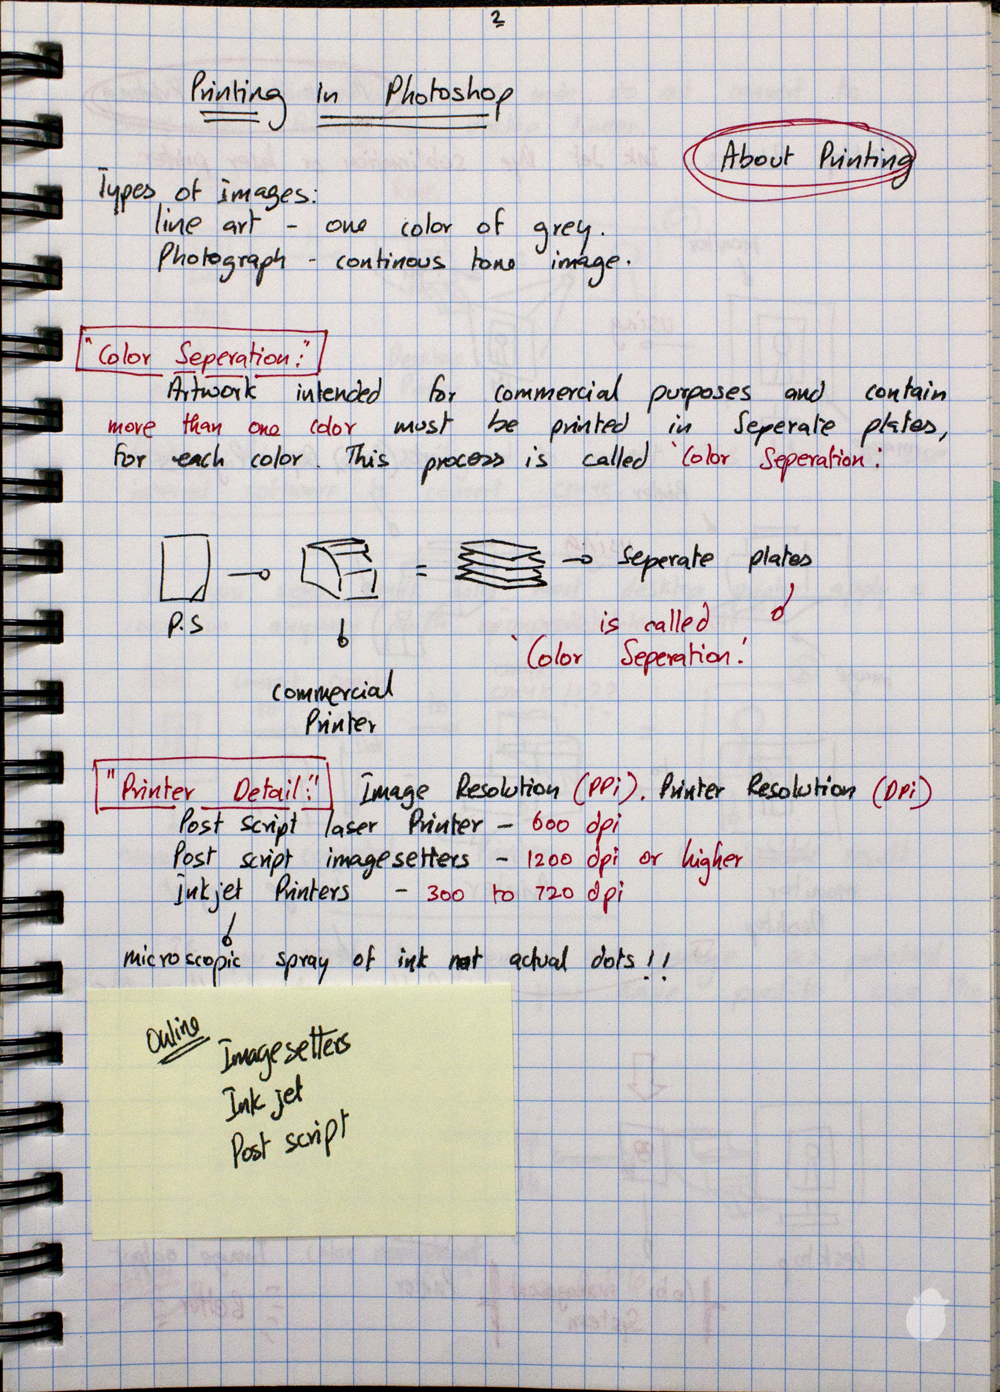 2
Printing In Photoshop
About Printing
Types of Images:
line art - one color of grey.
Photograph - continous tone image.
"Color Seperation:"
Artwork intended for commercial purposes and contain
more than one color must be printed in Seperate plates,
for each color. This process is called 'Color Seperation:'
P.S
commercial
Printer
=
seperate plates
is called
'Color Seperation.'
"Printer Detail:" Image Resolution (PPi). Printer Resolution (DPi)
Post script laser Printer - 600 dpi
Post script imagesetters - 1200 dpi or higher
Inkjet Printers - 300 to 720 dpi
microscopic spray of ink not actual dots!!
Online
Imagesetters
Ink jet
Post script